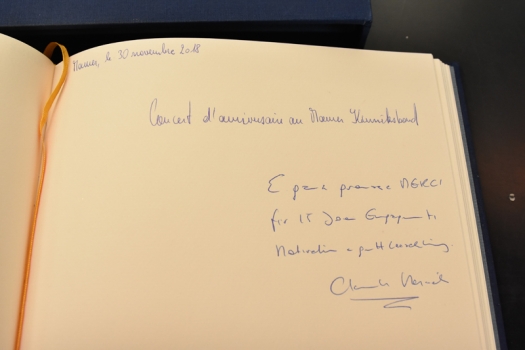 Mamer, le 30 novembre 2018
Concert d'anniversaire au Mamer Kinneksbond
E ganz grousse MERCI
fir 15 Joer Engagement,
Motivatioun a gutt
Claude